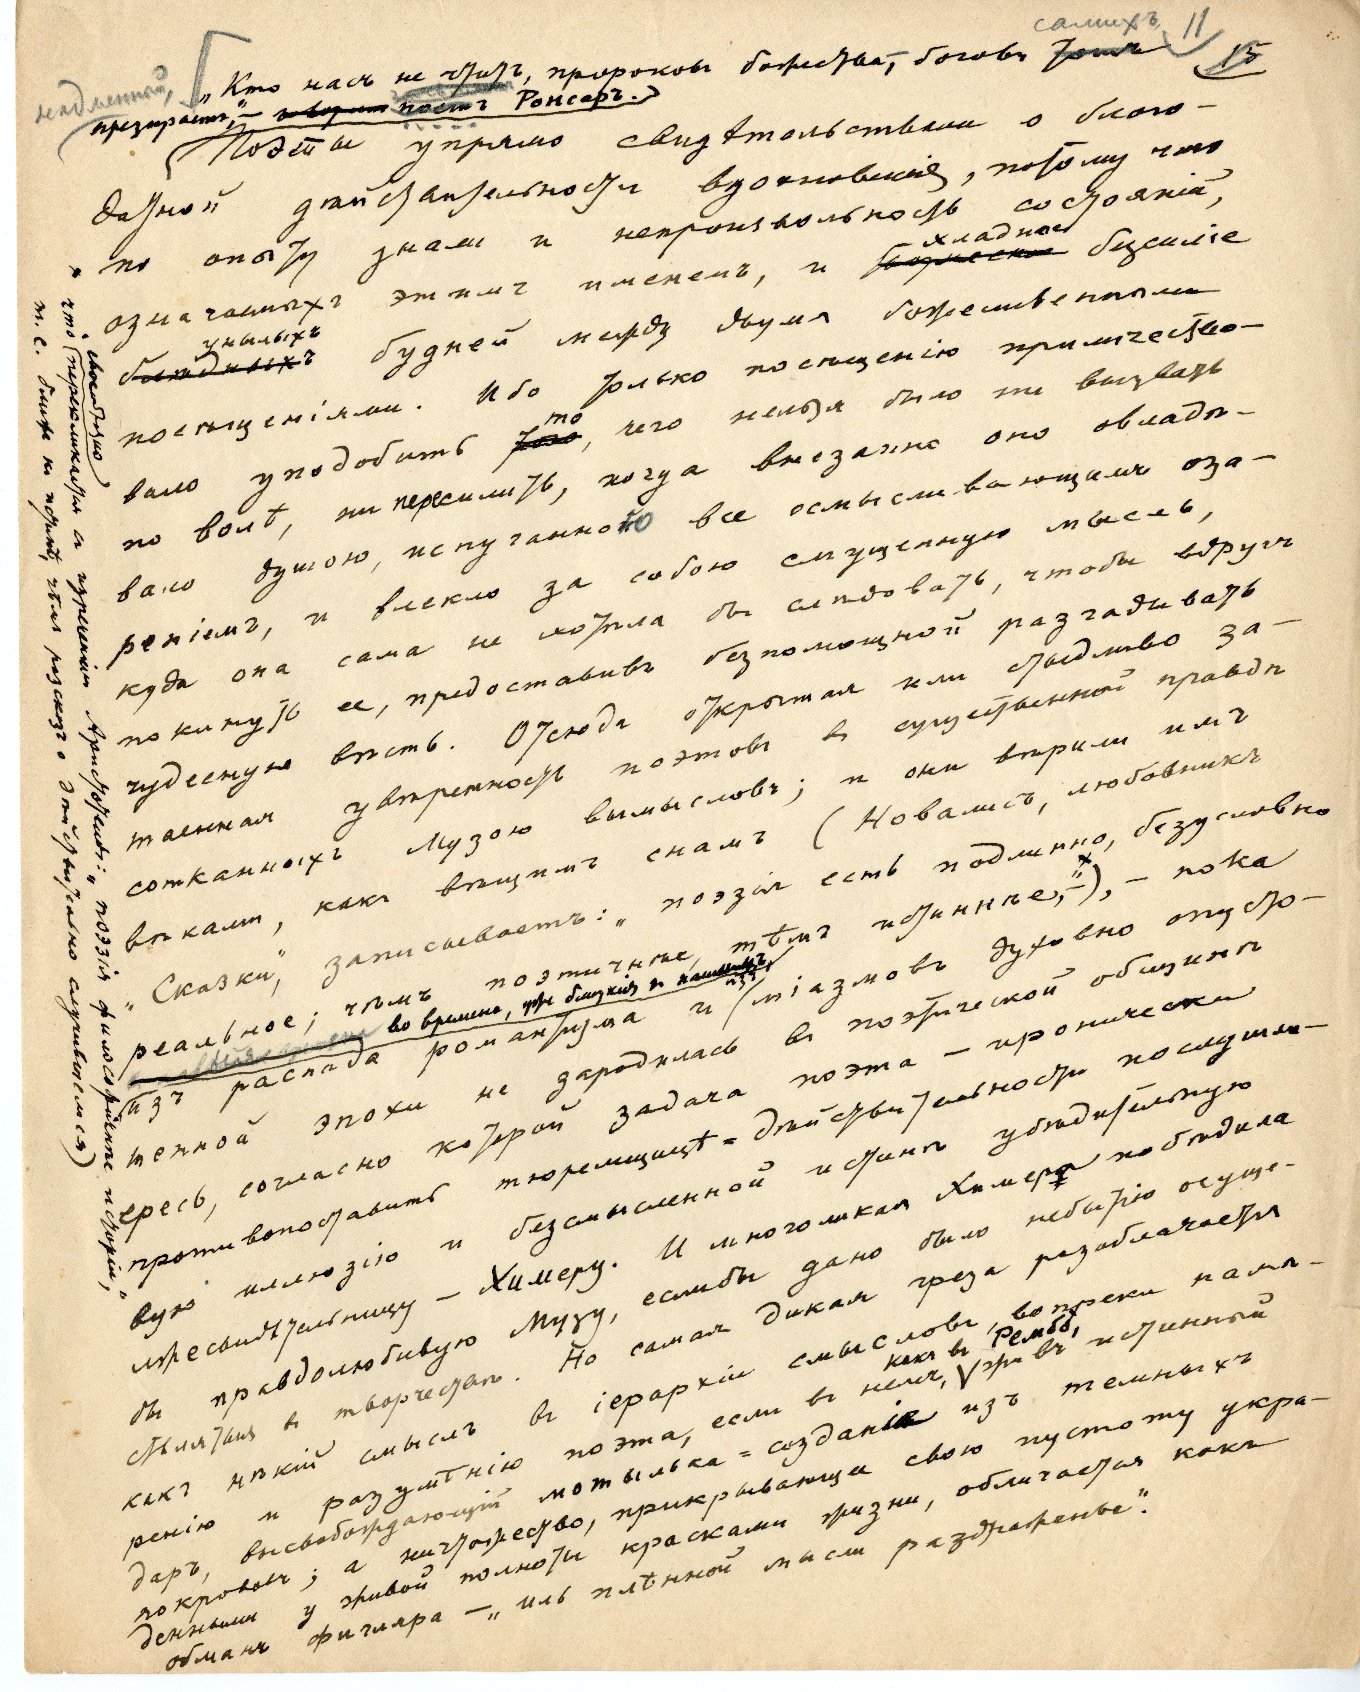 самихъ 11
15
„Кто насъ не чтитъ, пророковъ божества, боговъ
надменной,
презираетъ,“ — поетъ Ронсаръ.
Поэты упрямо свидѣтельствовали о благо-
датной дѣйствительности вдохновенія, потому что
по опыту знали и непроизвольность состояній,
хладное
означаемыхъ этимъ именемъ, и безсиліе
унылыхъ
блѣдныхъ будней между двумя божественными
посѣщеніями. Ибо только посѣщенію приличество-
то
вало уподобить того, чего нельзя было ни вызвать
по волѣ, ни пересилить, когда внезапно оно овладѣ-
вало душою, испуганною все осмысливающимъ оза-
реніемъ, и влекло за собою смущенную мысль,
куда она сама не хотѣла бы слѣдовать, чтобы вдругъ
покинуть ее, предоставивъ безпомощной разгадывать
чудесную вѣсть. Отсюда открытая или стыдливо за-
таенная увѣренность поэтовъ въ существенной правдѣ
сотканныхъ Музою вымысловъ; и они вѣрили имъ
вѣками, какъ вѣщимъ снамъ (Новалисъ, любовникъ
„Сказки“, записываетъ: „поэзія есть подлинно, безусловно
реальное; чѣмъ поэтичнѣе, тѣмъ истиннѣе“,—ˣ), — пока
во времена, уже близкія къ нашимъ,
изъ распада романтизма и изъ міазмовъ духовно опусто-
шенной эпохи не зародилась въ поэтической общинѣ
ересь, согласно которой задача поэта — иронически
противопоставить тюремщицѣ-дѣйствительности послушли-
вую иллюзію и безсмысленной истинѣ убѣдительную
лжесвидѣтельницу — Химеру. И многоликая Химера побѣдила
бы правдолюбивую Музу, еслибы дано было небытію осуще-
ствляться въ творчествѣ. Но самая дикая греза разоблачается
какъ нѣкій смыслъ въ іерархіи смысловъ, вопреки намѣ-
какъ въ Рембо,
ренію и разумѣнію поэта, если въ немъ, живъ истинный
даръ, высвобождающій мотылька-созданіе изъ темныхъ
покрововъ; а ничтожество, прикрывающее свою пустоту укра-
денными у живой полноты красками жизни, обличается какъ
обманъ фигляра — „иль плѣнной мысли раздраженье“.
ˣ что своеобразно перекликается съ изреченіемъ Аристотеля: „поэзія философичнѣе исторіи“,
т. е. ближе къ истинѣ, чѣмъ разсказъ о дѣйствительно случившемся)